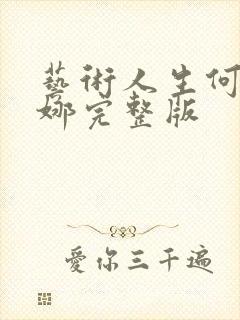 藝術人生何
娜完整版
愛你三千遍